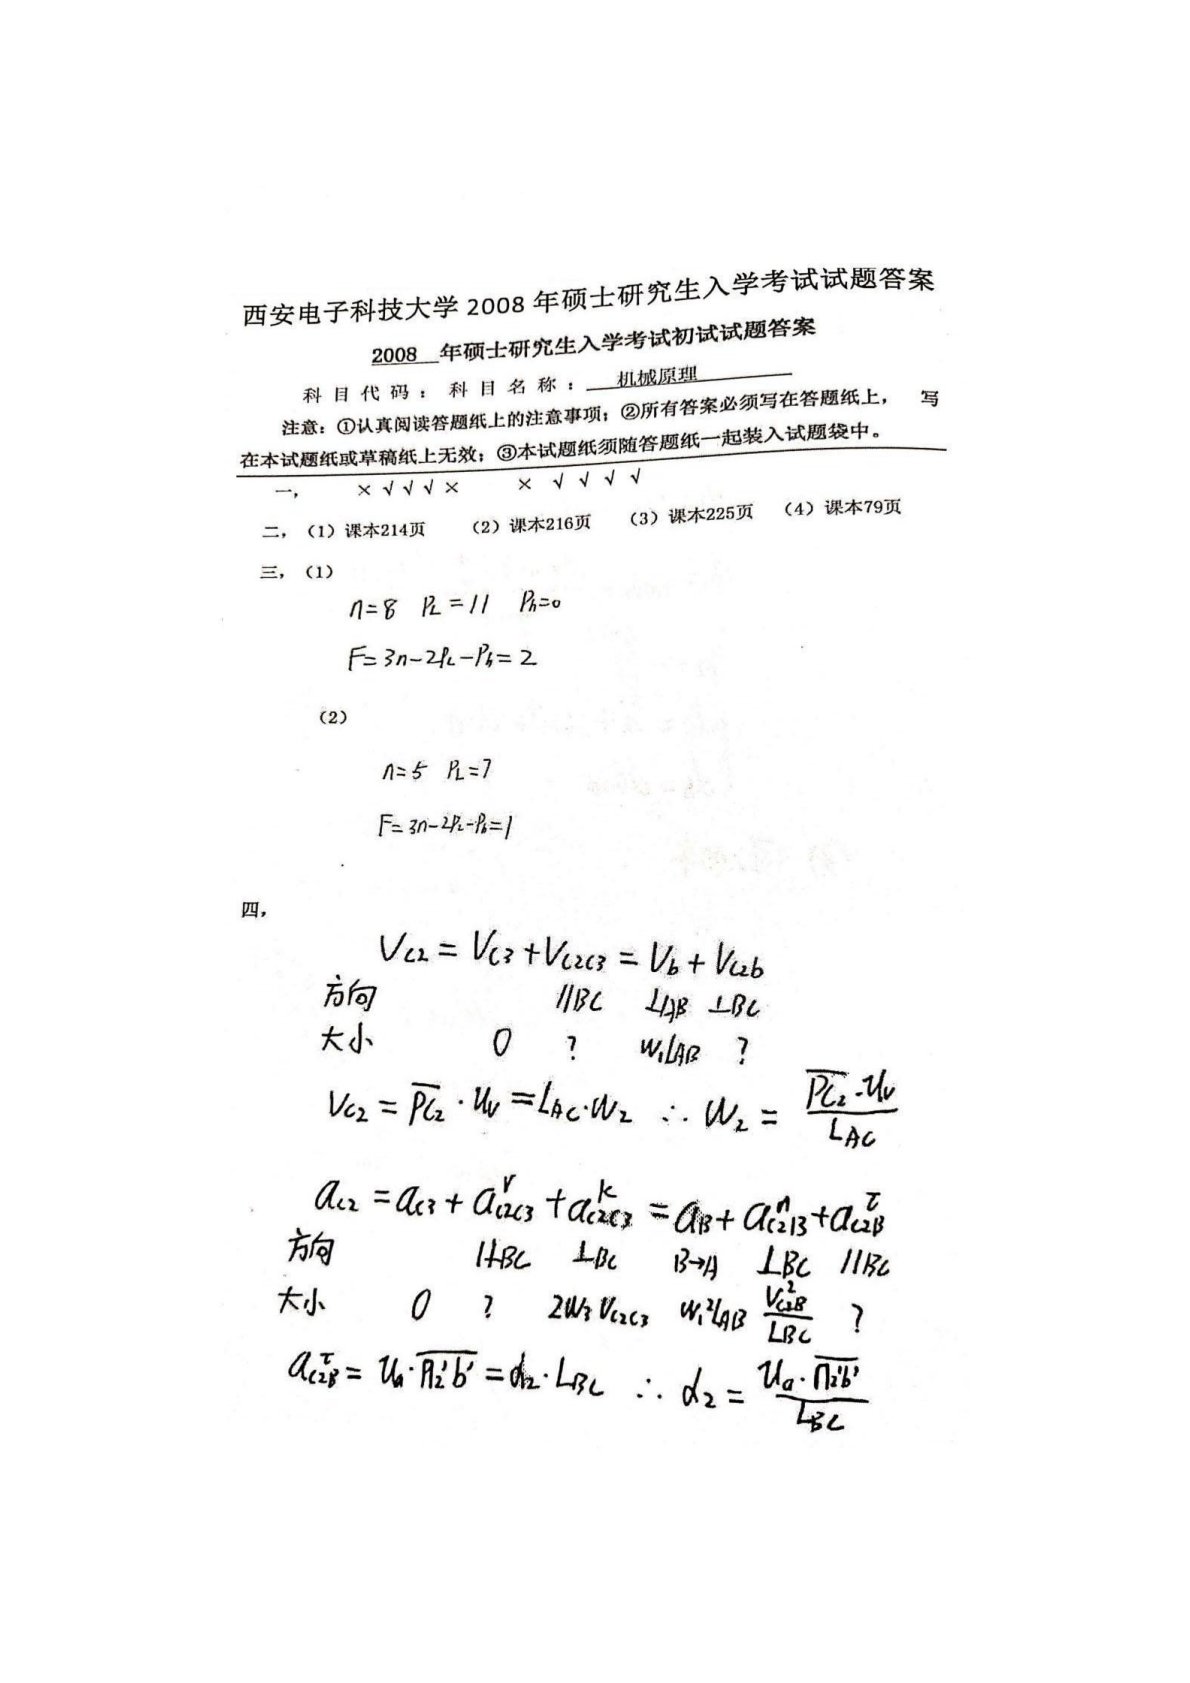 西安电子科技大学 2008 年硕士研究生入学考试试题答案
2008 年硕士研究生入学考试初试试题答案
科目代码：科目名称：机械原理
注意：①认真阅读答题纸上的注意事项；②所有答案必须写在答题纸上， 写
在本试题纸或草稿纸上无效；③本试题纸须随答题纸一起装入试题袋中。
一， ×√√√× ×√√√√
二，（1）课本214页 （2）课本216页 （3）课本225页 （4）课本79页
三，（1）
n=8 PL=11 Ph=0
F=3n-2PL-Ph=2
（2）
n=5 PL=7
F=3n-2PL-Ph=1
四，
VC2 = VC3 + VC2C3 = Vb + VC2b
方向 //BC ⊥AB ⊥BC
大小 0 ? W1LAB ?
VC2 = PC2 · Uv = LAC·W2 ∴ W2 = PC2·Uv / LAC
aC2 = aC3 + a^r C2C3 + a^k C2C3 = aB + a^n C2B + a^τ C2B
方向 //BC ⊥BC B→A ⊥BC //BC
大小 0 ? 2W3VC2C3 W1²LAB V²C2B/LBC ?
a^τ C2B = Ua·n2'b' = α2·LBC ∴ α2 = Ua·n2'b' / LBC